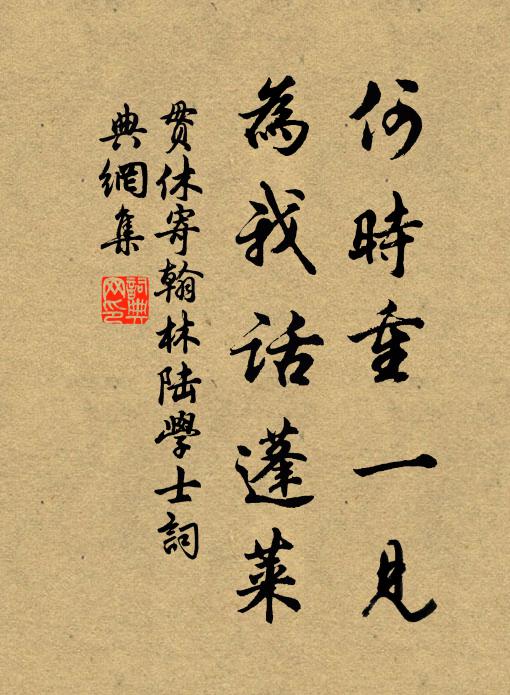 何時重一見
為我話蓬萊
貫休寄翰林陸學士詞
典網集
詞典
网印